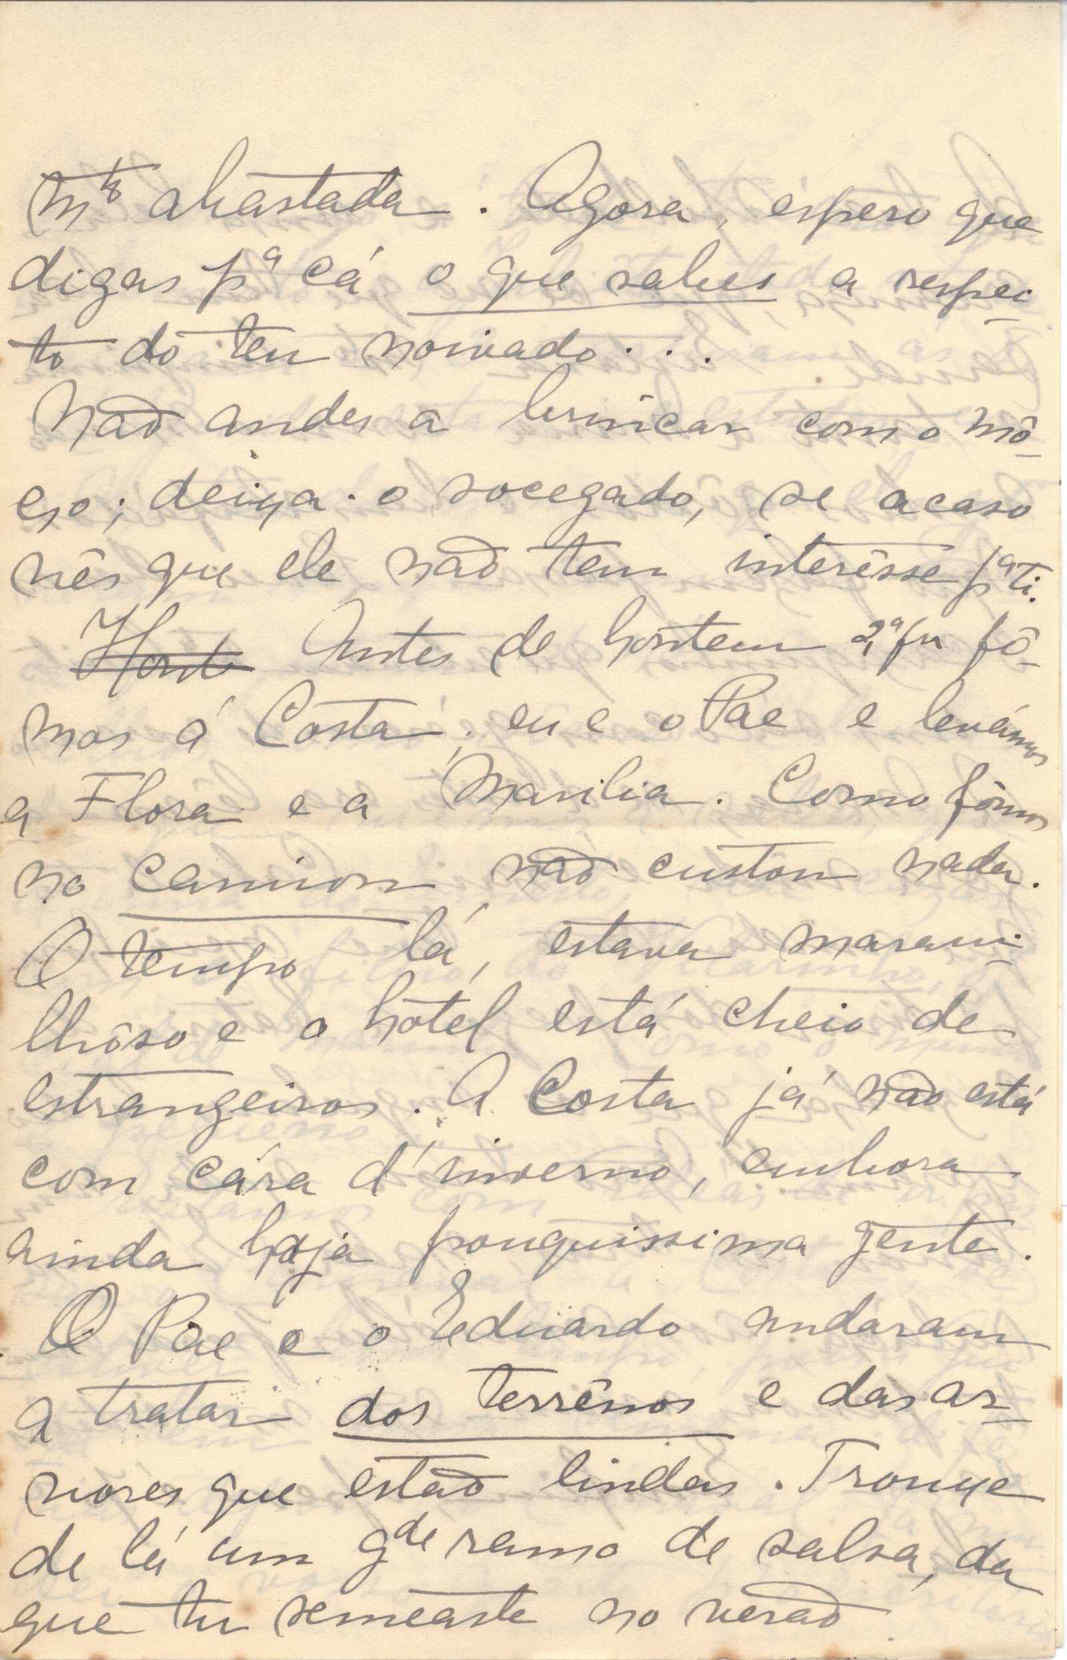 Mto abastada. Agora, espero que
digas pª cá o que sabes a respei-
to do teu noivado...
Não andes a brincar com o mô-
ço; deixa-o socegado, se acaso
vês que ele não tem interêsse pª ti.
Hont Antes de hontem 2ª fª fô-
mos á Costa; eu e o Pae e levámos
a Flora e a Marilia. Como fômos
no camion não custou nada.
O tempo lá, estava maravi-
lhôso e o hotel está cheio de
estrangeiros. A Costa já não está
com cára d'inverno, embora
ainda haja pouquissima gente.
O Pae e o Eduardo andaram
a tratar dos terrênos e das ar-
vores que estão lindas. Trouxe
de lá um gde ramo de salsa, da
que tu semeaste no verão